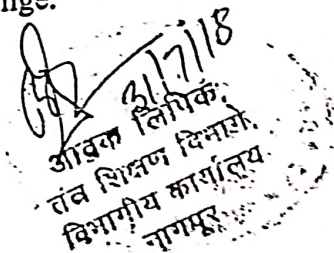 nge.
31/7/18
आवक लिपिक,
तंत्र शिक्षण विभागीय,
विभागीय कार्यालय
नागपूर